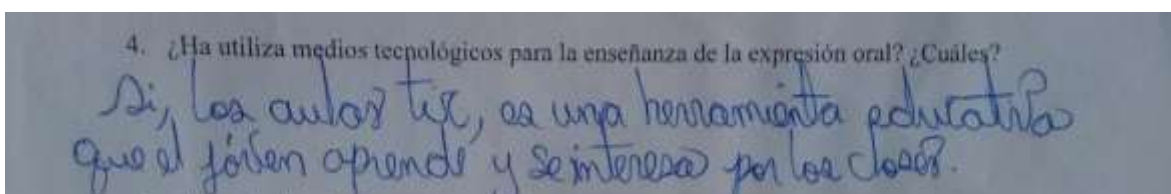 4. ¿Ha utiliza medios tecnológicos para la enseñanza de la expresión oral? ¿Cuáles?
Si, las aulas tic, es una herramienta educativa
que el jóven aprende y se interesa por las clases.